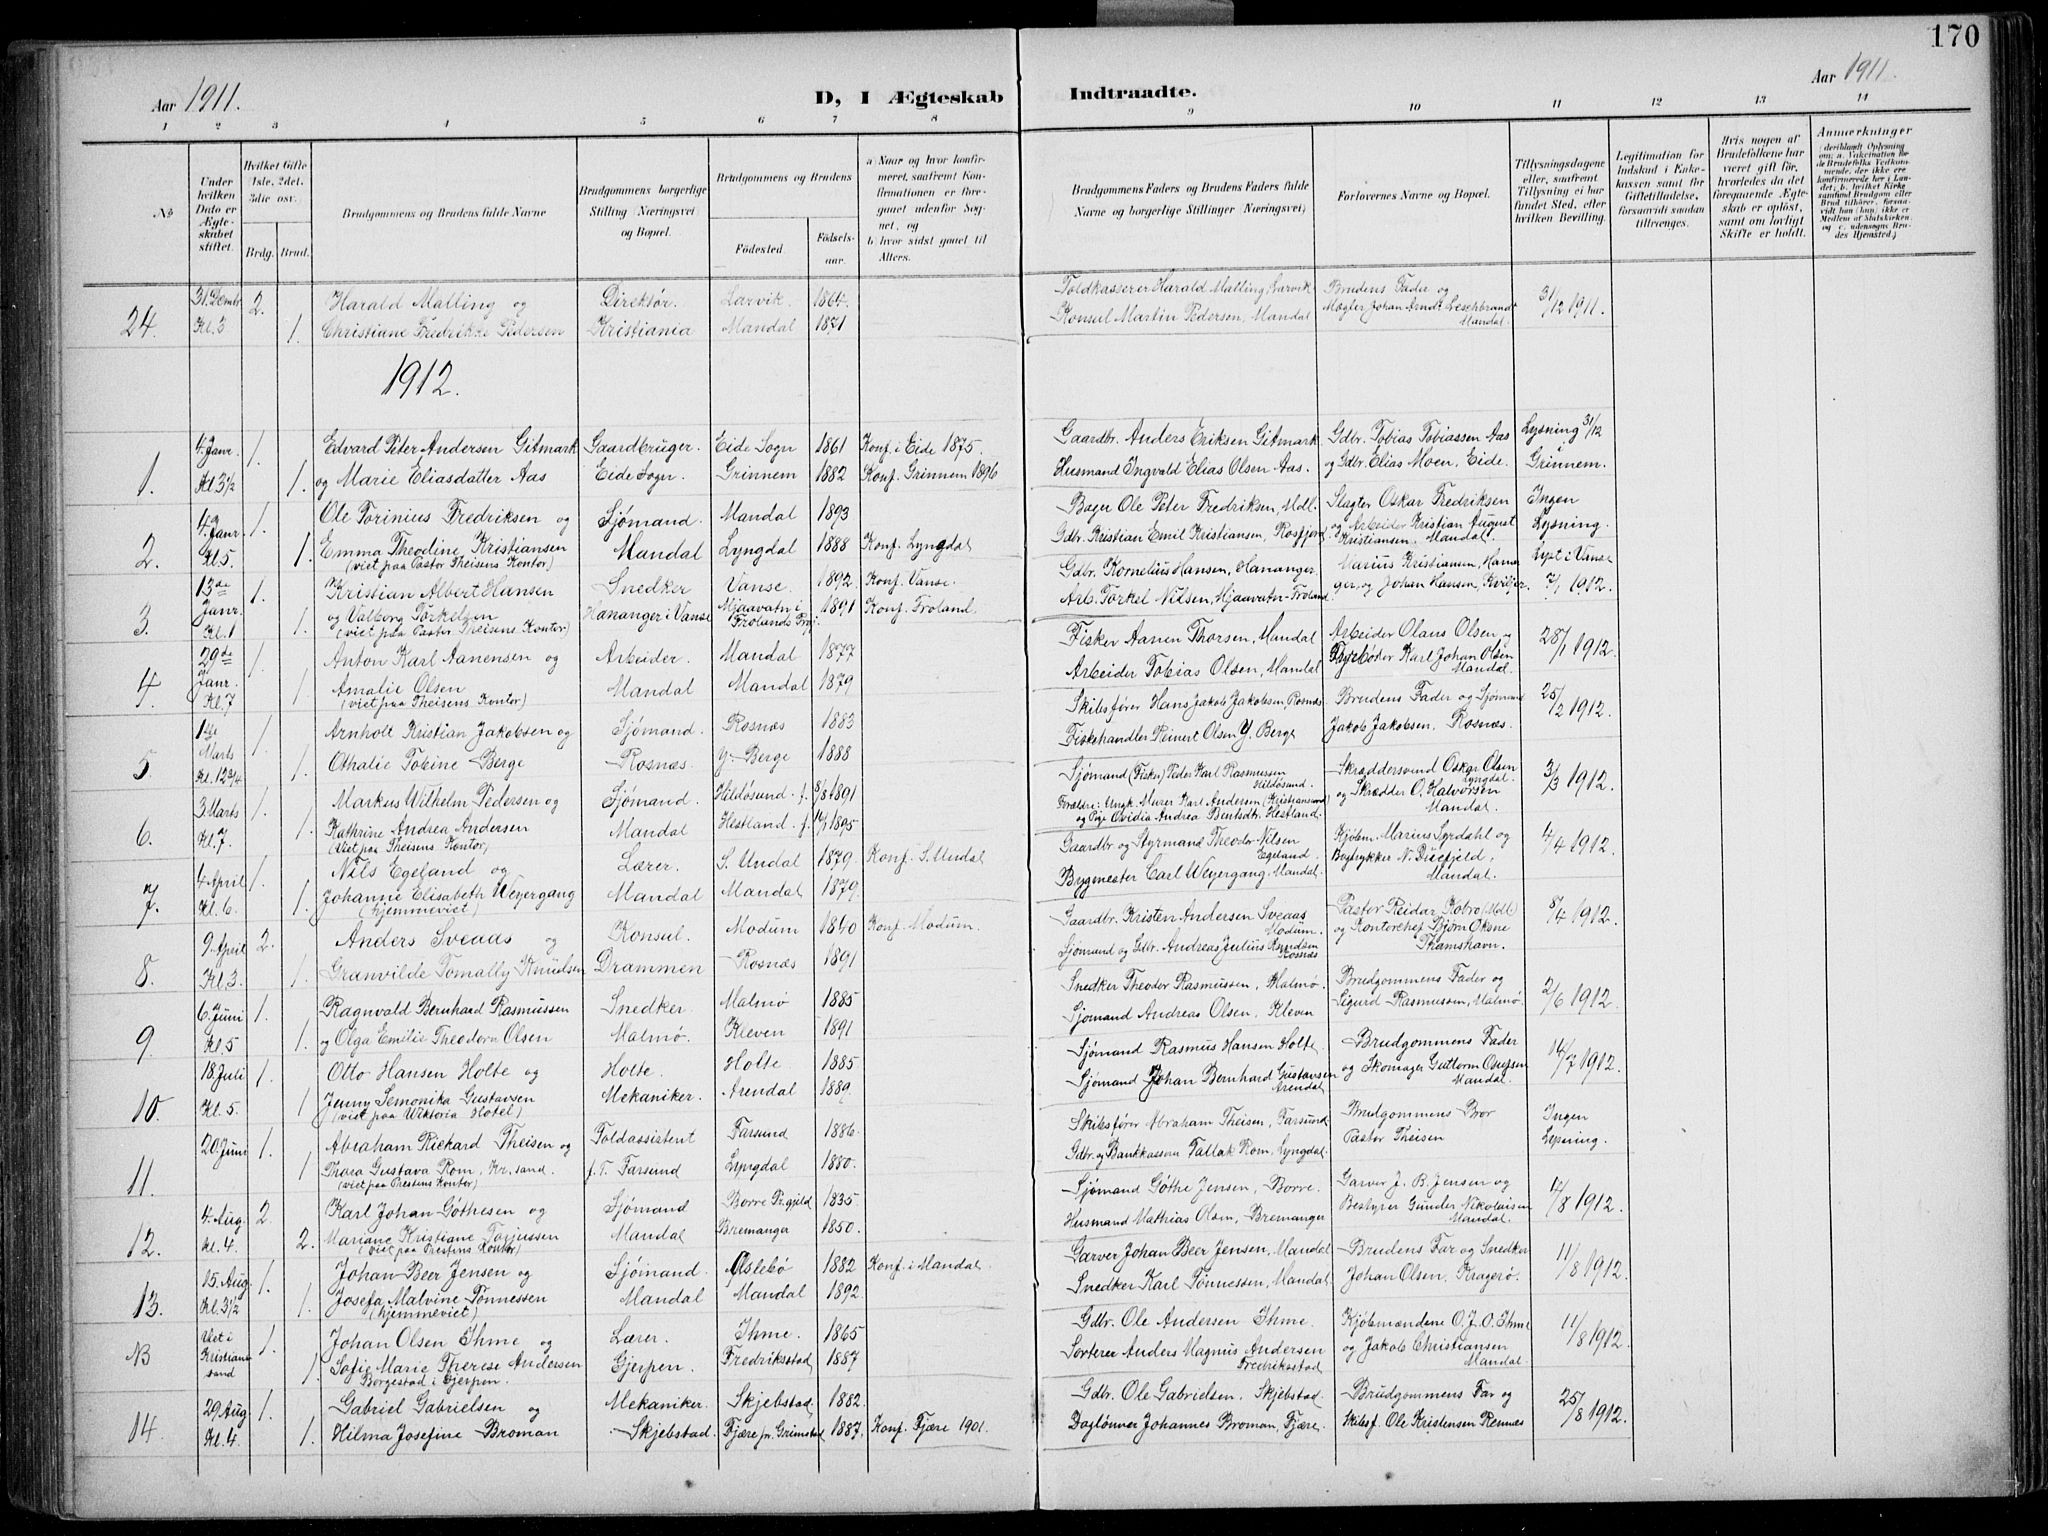 170
Aar 1911.
D, I Ægteskab Indtraadte.
Aar 1911.
1 2 3 4 5 6 7 8 9 10 11 12 13 14
No
Under hvilken Dato er Ægteskabet stiftet.
Hvilket Gifte 1ste, 2det, 3die osv.
Brdg. Brud.
Brudgommens og Brudens fulde Navne
Brudgommens borgerlige Stilling Næringsvei og Bopæl.
Brudgommens og Brudens
Fødested. Fødselsaar.
a) Naar og hvor konfirmeret, saafremt Konfirmationen er foregaaet udenfor Sognet, og
b) hvor sidst gaaet til Alters.
Brudgommens Faders og Brudens Faders fulde Navne og borgerlige Stillinger Næringsvei)
Forlovernes Navne og Bopæl.
Tillysningsdagene eller, saafremt Tillysning ei har fundet Sted, efter hvilken Bevilling.
Legitimation for Indskud i Enkekassen samt for Giftetilladelse, forsaavidt saadan tiltrænges.
Hvis nogen af Brudefolkene har været gift før, hvorledes da det foregaaende Ægteskab er opløst, samt om lovligt Skifte er holdt.
Anmærkninger (deriblandt Oplysning om: a. Vaksination for de Brudefolks Vedkommende, der ikke ere konfirmerede her i Landet; b. hvilket Kirkesamfund Brudgom eller Brud tilhører, forsaavidt han (hun) ikke er Medlem af Statskirken; og c. udensogns Brudes Hjemsted.)
24. 31. Dembr. Kl. 3 2. 1. Harald Malling og Direktør. Larvik. 1864. Toldkasserer Harald Malling, Larvik Brudens Fader og 31/12 1911.
Christiane Fredrikke Pedersen Kristiania Mandal 1871 Konsul Martin Pedersen, Mandal Mægler Johan Arndt Mandal.
1912.
1. 4. Janr. Kl. 3½ 1. 1. Edvard Peter Andersen Gitmark Gaardbruger. Eide Sogn 1861 Konf. i Eide 1875. Gaardbr. Anders Eriksen Gitmark Gdbr. Tobias Tobiassen Aas Lysning 31/12
og Marie Eliasdatter Aas Eide Sogn. Grinnem 1882 Konf. Grinnem 1896 Husmand Ingvald Elias Olsen Aas. og Gdbr. Elias Moen, Eide. i Grinnem.
2. 4. Janr. Kl. 5. 1. 1. Ole Torinius Fredriksen og Sjømand. Mandal 1893 Bager Ole Peter Fredriksen, Mdl. Slagter Oskar Fredriksen Ingen
Emma Theodine Kristiansen Mandal Lyngdal 1888 Konf. Lyngdal Gdbr. Kristian Emil Kristiansen, Rosfjord og Arbeider Kristian August Kristiansen, Mandal. Lysning.
(viet paa Pastor Theisens Kontor)
3. 13de Janr. Kl. 1 1. 1. Kristian Albert Hansen Snedker Vanse. 1892. Konf. Vanse. Gdbr. Kornelius Hansen, Hananger. Marius Kristiansen, Hananger, og Johan Hansen, Kviljo. Lyst i Vanse
og Valborg Torkelsen Hananger i Vanse Mjaavatn i Frolands Prgj. 1891 Konf. Froland. Arb. Torkel Nilsen, Mjaavatn-Froland. 7/1 1912.
(viet paa Pastor Theisens Kontor)
4. 29de Janr. Kl. 7 1. 1. Anton Karl Aanensen og Arbeider. Mandal 1877 Fisker Aanen Thorsen, Mandal Arbeider Olaus Olsen og 28/1 1912.
Amalie Olsen Mandal Mandal 1879 Arbeider Tobias Olsen, Mandal Fyrbøder Karl Johan Olsen Mandal.
(viet paa Theisens Kontor)
5. 1ste Marts Kl. 12¾ 1. 1. Arnholt Kristian Jakobsen og Sjømand. Rosnæs 1883 Skibsfører Hans Jakob Jakobsen, Rosnæs Brudens Fader og Sjømand 25/2 1912.
Othalie Tobine Berge Rosnæs. Y. Berge 1888 Fiskehandler Reinert Olsen Y. Berge Jakob Jakobsen, Rosnæs.
6. 3 Marts Kl. 7. 1. 1. Markus Wilhelm Pedersen og Sjømand. Hildøsund. f. 8/8 1891 Sjømand (Fisker) Peder Karl Rasmussen Hildøsund. Skræddersvend Oskar Olsen Lyngdal. 3/3 1912.
Kathrine Andrea Andersen Mandal Hestland. f. 14/1 1895 Forældre: Ungk. Murer Karl Andersen (Kristianssund) og Pige Ovidia Andrea Berntsdt. Hestland. og Skrædder O. Halvorsen Mandal.
(Viet paa Theisens Kontor)
7. 4 April Kl. 6. 1. 1. Nils Egeland og Lærer. S. Undal 1879. Konf. S. Undal Gaardbr og Styrmand Theodor Nilsen Egeland. Kjøbm. Marius Syrdahl og 4/4 1912.
Johanne Elisabeth Weyergang Mandal Mandal 1879. Bygmester Carl Weyergang, Mandal. Bogtrykker N. Mandal.
(hjemmeviet)
8. 9 April Kl. 3. 2. 1. Anders Sveaas og Konsul. Modum 1840 Konf. Modum. Gaardbr. Kristen Andersen Sveaas Modum. Pastor Reidar Kobro (Mdl) 8/4 1912.
Granvilde Tomally Knudsen Drammen Rosnæs 1891 Sjømand og Gdbr. Andreas Julius Knudsen Rosnæs og Kontorchef Bjørn Oksne Thamshavn.
9. 6. Juni Kl. 5 1. 1. Ragnvald Bernhard Rasmussen Snedker Malmø 1885 Snedker Theodor Rasmussen, Malmø. Brudgommens Fader og 2/6 1912.
og Olga Emilie Theodora Olsen Malmø. Kleven 1891 Sjømand Andreas Olsen, Kleven Sigurd Rasmussen, Malmø.
10 18. Juli Kl. 5. 1. 1 Otto Hansen Holte og Holte. Holte 1885 Sjømand Rasmus Hansen Holte. Brudgommens Fader 14/7 1912.
Jenny Semonika Gustavsen Mekaniker. Arendal 1889. Sjømand Johan Bernhard Gustavsen Arendal og Skomager Guttorm Mandal.
(viet paa Wiktoria Hotel)
11. 20. Juni 1. 1 Abraham Rickard Theisen og Toldassistent Farsund 1886. Skibsfører Abraham Theisen, Farsund Brudgommens Bror Ingen
Thora Gustava Rom, Kr.sand. f. T. Farsund Lyngdal 1880. Gdbr. og Bankkasserer Tallak Rom, Lyngdal. Pastor Theisen Lysning.
(viet paa Prestens Kontor)
12. 4. Aug. Kl. 4. 2. 2. Karl Johan Gøthesen og Sjømand Borre Prgjeld 1835 Sjømand Gøthe Jensen, Borre. Garver J. B. Jensen og 4/8 1912.
Mariane Kristiane Torjussen Mandal Bremanger 1850. Husmand Mathias Olsen, Bremanger Bestyrer Gunder Nikolaisen Mandal.
(viet paa Prestens Kontor)
13. 15. Aug. Kl. 3½ 1. 1. Johan Beer Jensen og Sjømand. Oslebø 1882 Konf. i Mandal. Garver Johan Beer Jensen, Mandal Brudens Far og Snedker 11/8 1912.
Josefa Malvine Tønnessen Mandal Mandal 1892 Snedker Karl Tønnessen, Mandal. Johan Olsen, Kragerø.
(hjemmeviet)
NB Viet i Kristianssand 1. 1. Johan Olsen Ihme og Lærer. Ihme. 1865 Gdbr. Ole Andersen Ihme. Kjøbmændene O. J. O. Ihme 11/8 1912.
Sofie Marie Therese Andersen Gjerpen. Fredriksstad 1887 Sorterer Anders Magnus Andersen Fredriksstad og Jakob Christiansen Mandal.
Borgestad i Gjerpen.
14. 29 Aug Kl. 4. 1. 1. Gabriel Gabrielsen og Mekaniker. Skjebstad. 1882. Gdbr. Ole Gabrielsen, Skjebstad. Brudgommens Far og 25/8 1912.
Hilma Josefine Broman Skjebstad. Fjære pr. Grimstad 1887. Konf. Fjære 1901. Dagløнner Johannes Broman, Fjære. Skibsf. Ole Kristensen Rennæs